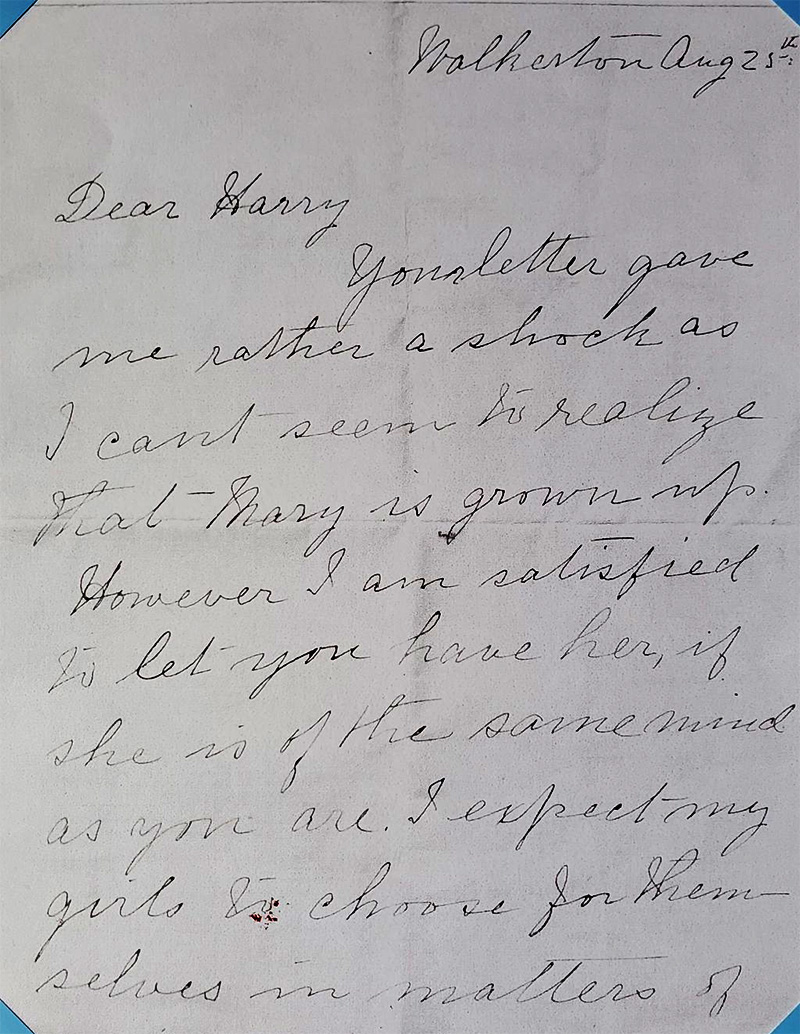 Walkerton Aug 25th:
Dear Harry
Your letter gave
me rather a shock as
I cant seem to realize
that Mary is grown up.
However I am satisfied
to let you have her, if
she is of the same mind
as you are. I expect my
girls to choose for them-
selves in matters of